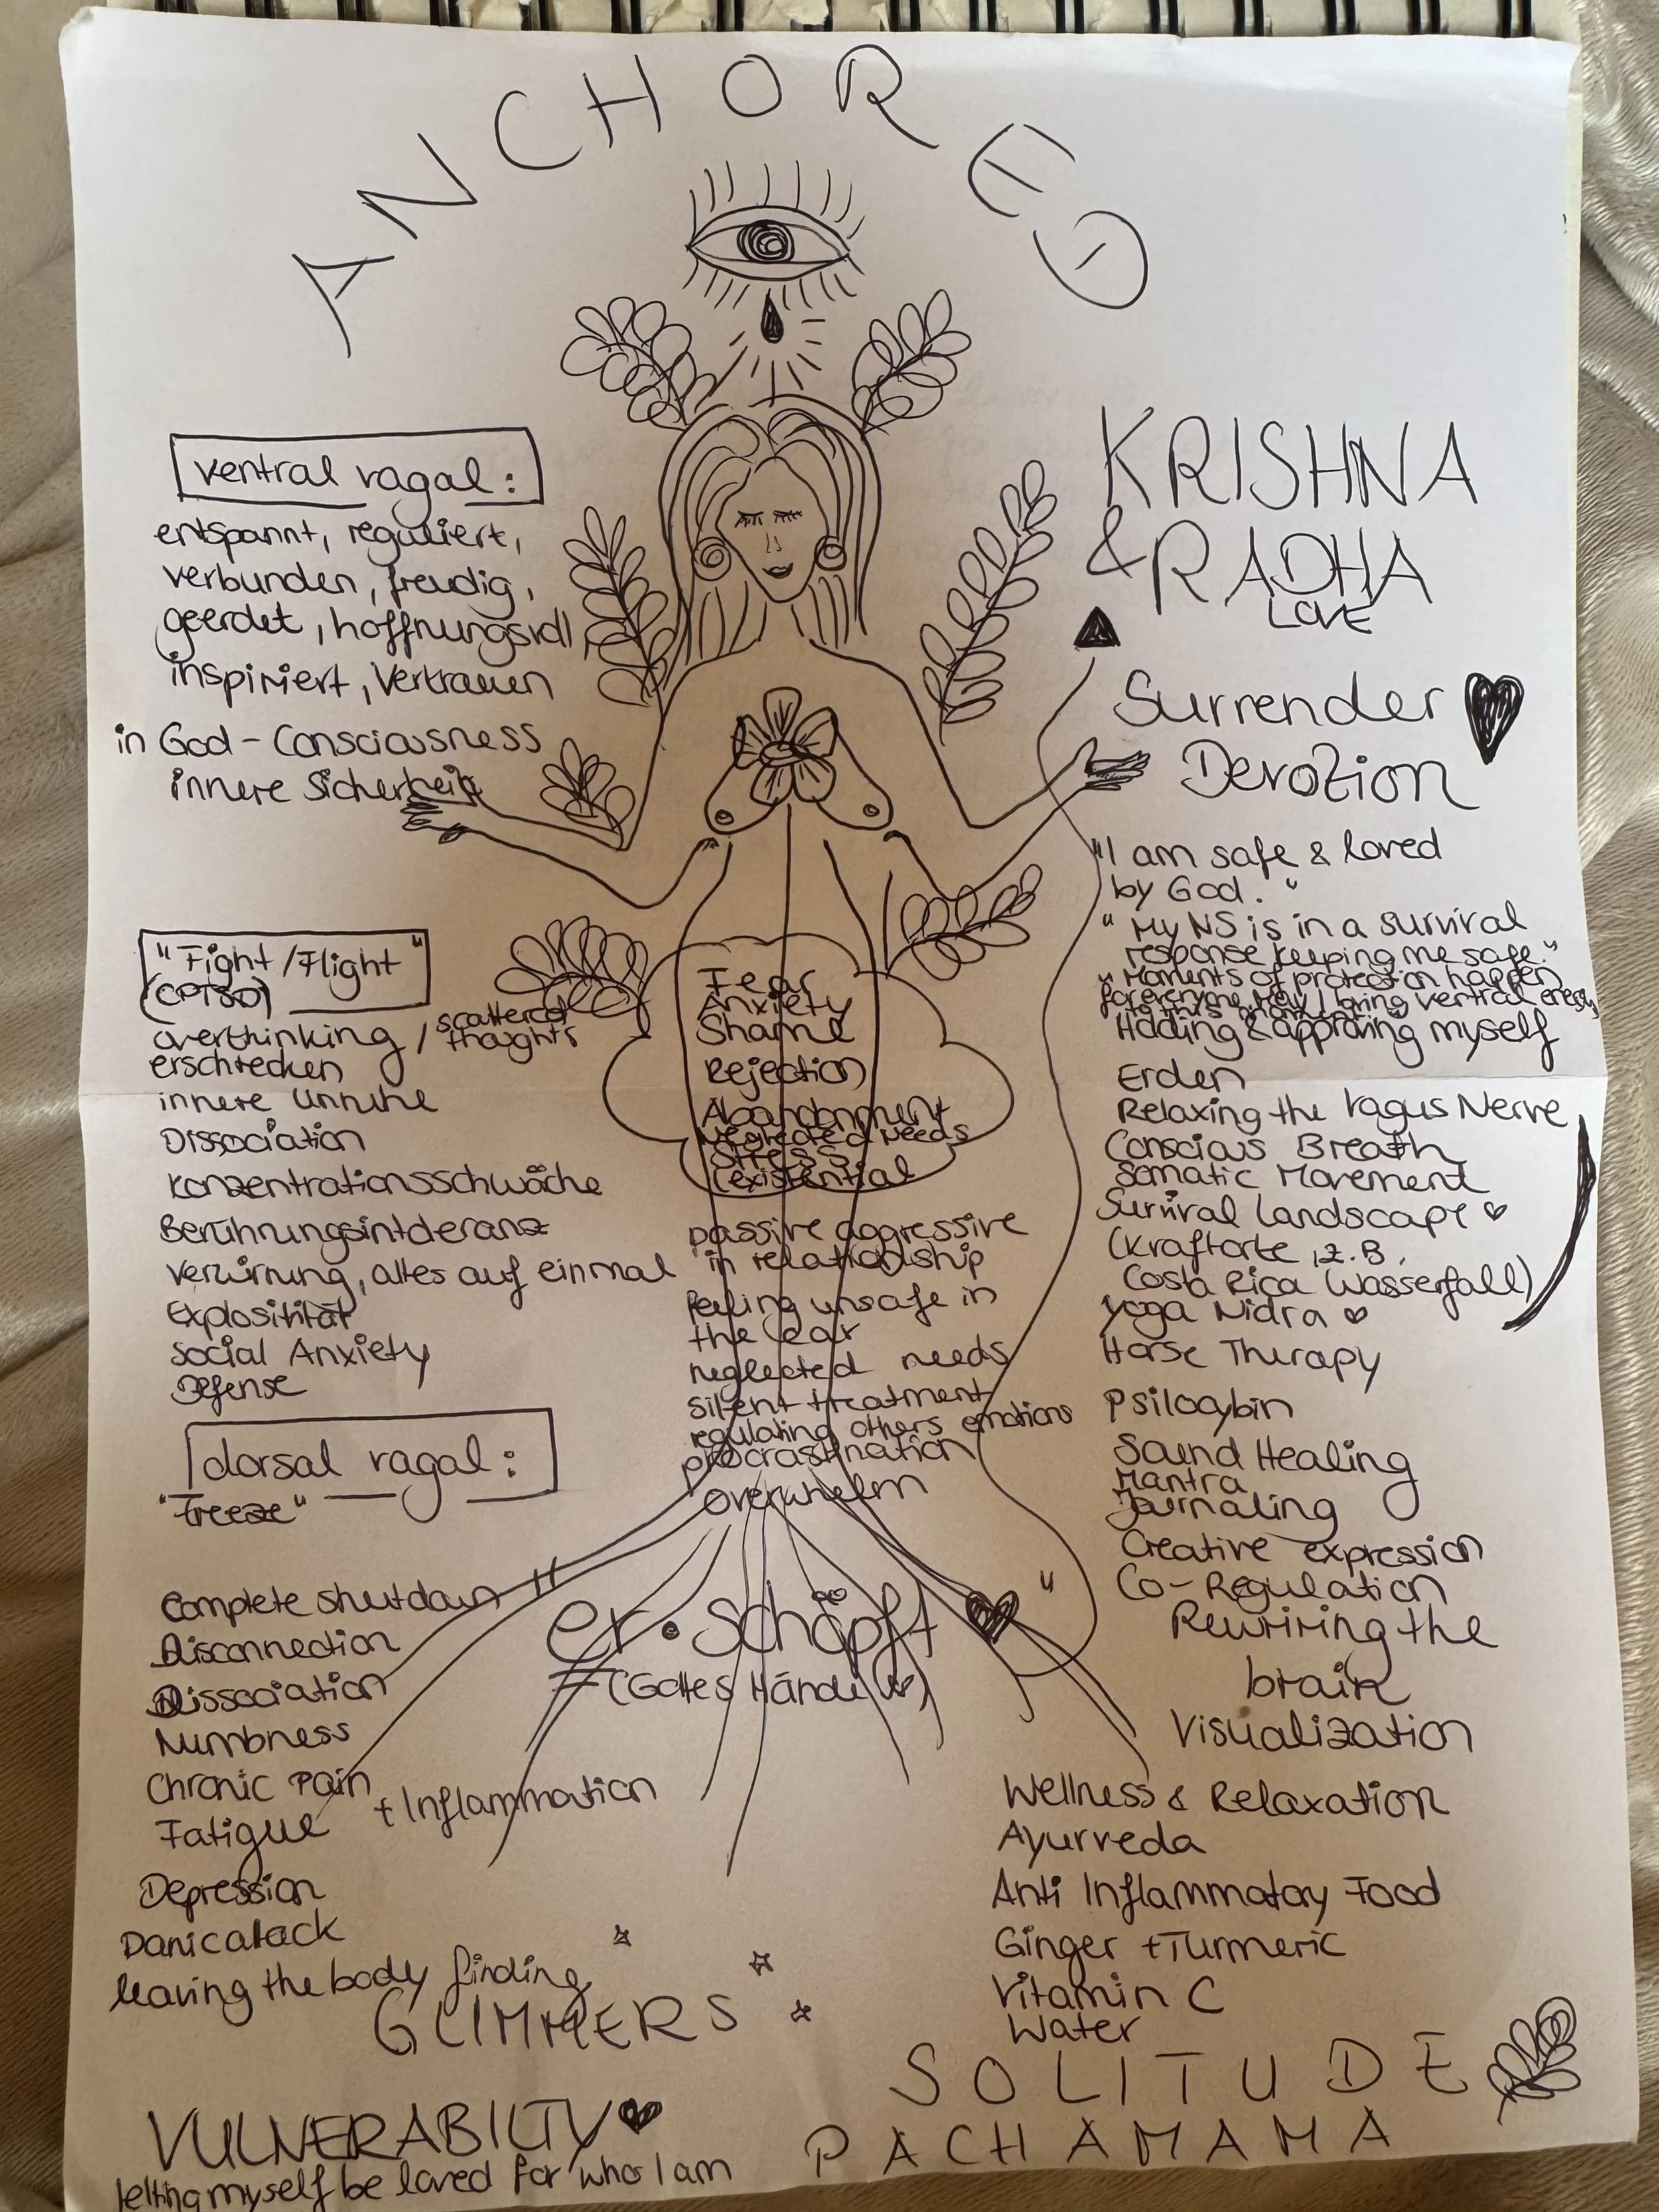 ANCHORED
ventral vagal:
entspannt, reguliert,
verbunden, freudig,
geerdet, hoffnungsvoll
inspiriert, Vertrauen
in God-Consciousness
innere Sicherheit
"Fight/Flight"
(CPTSD)
overthinking / scattered thoughts
erschrecken
innere Unruhe
Dissociation
Konzentrationsschwäche
Berührungsintoleranz
Verwirrung, alles auf einmal
Explosivität
Social Anxiety
Defense
dorsal vagal:
"Freeze"
Complete shutdown
Disconnection
Dissociation
Numbness
Chronic Pain
+ Inflammation
Fatigue
Depression
Panicatack
leaving the body
finding
GLIMMERS
VULNERABILTY
letting myself be loved for who I am
Fear
Anxiety
Shame
Rejection
Abandonment
Neglected Needs
Stress
(existential
passive aggressive
in relationship
feeling unsafe in
the car
neglected needs
silent treatment
regulating others emotions
procrastination
overwhelm
er • schöpft "
= (Gottes Hände)
KRISHNA
& RADHA
LOVE
Surrender
Devotion
"I am safe & loved
by God."
"My NS is in a survival
response keeping me safe."
"Moments of protection happen
for everyone. May I bring ventral energy
to this moment."
Holding & approving myself
Erden
Relaxing the Vagus Nerve
Conscious Breath
Somatic Movement
Survival Landscape
(Kraftorte, z.B.
Costa Rica (Wasserfall)
Yoga Nidra
Horse Therapy
Psilocybin
Sound Healing
Mantra
Journaling
Creative expression
Co-Regulation
Rewriring the
brain
Visualization
Wellness & Relaxation
Ayurveda
Anti Inflammatory Food
Ginger + Turmeric
Vitamin C
Water
SOLITUDE
PACHAMAMA